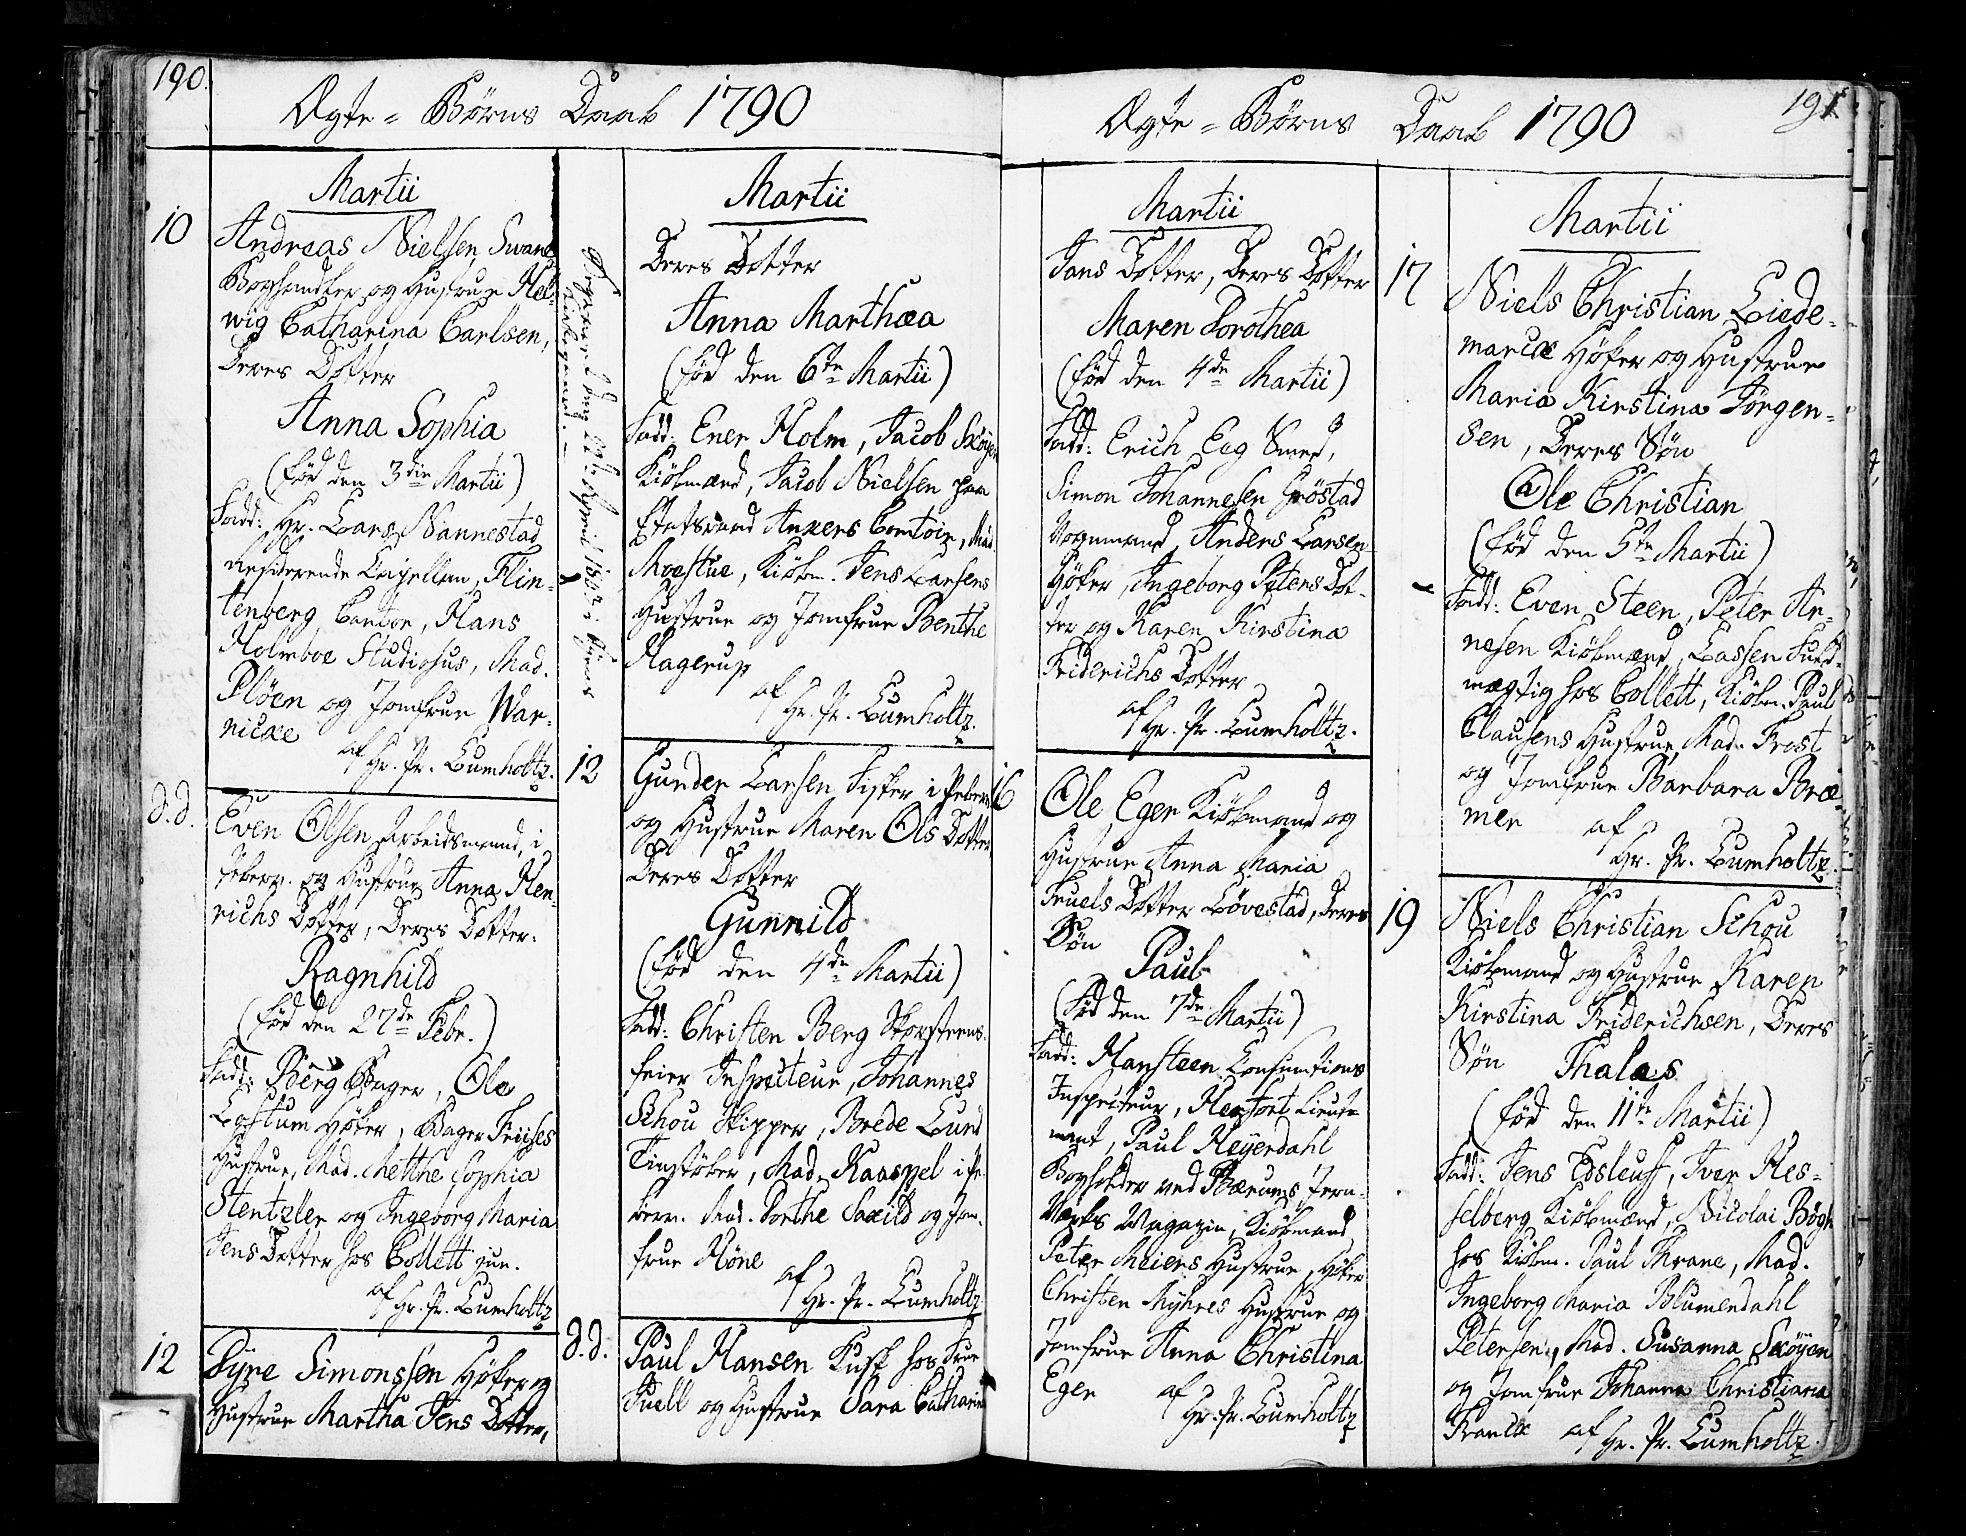 190.
Ægte = Börns Daab 1790
Martii
10
Andreas Nielssen Swane
Boghandler og Hustrue Hel-
wig Catharina Carlsen,
Deres Dotter
Anna Sophia
(fød den 3die Martii)
Fadd: Hr. Lars Nannestad
Residerende Capellan, Flin-
tenberg Cantor, Hans
Holmboe Studiosus, Mad.
Plöen og Jomfrue War-
nicke
af Hr. Pr. Lumholtz.
d.d.
Even Olsen Arbeidsmand i
Peberv. og Hustrue Anna Hen-
richs Dotter, Deres Dotter.
Ragnhild
(fød den 27de Febr.)
Fadd: Berg Bager, Ole
Høker, Bager Friises
Hustrue, Mad. Methe Sophia
Stentzler og Ingeborg Maria
Jens Dotter hos Collett jun.
af Hr. Pr. Lumholtz
12
Pyre Simonssen Høker og
Hustrue Martha Jens Dotter,
April 1802 i
Martii
Deres Dotter
Anna Marthæa
(fød den 6te Martii)
Fadd: Ener Holm, Jacob Sköyen
Kiöbmænd, Jacob Nielsen paa
Etatsraad Ankers Contoir, Mad.
Moestue, Kiöbm. Jens Larsens
Hustrue og Jomfrue Benthe
Hagerup
af Hr. Pr. Lumholtz.
12
Gunder Larsen Fisker i Peberv.
og Hustrue Maren Ols Dotter,
Deres Dotter
Gunnild
(fød den 4de Martii)
Fadd: Christen Berg Skorsteens-
feier Inspecteur, Johannes
Schou Skipper, Brede Lund
Tinstöber, Mad. Kaaspel i Pe-
berv. Mad. Dorthe Saxild og Jom-
frue Höne
af Hr. Pr. Lumholtz
d.d.
Paul Hansen Kusk hos Frue
Juell og Hustrue Sara Catharina
191
Ægte = Börns Daab 1790
Martii
Jans Dotter, Deres Dotter
Maren Dorothea
(fød den 4de Martii)
Fadd: Erich Eeg Smed,
Simon Johannesen Gröstad
Vognmand, Anders Larsen
Høker, Ingeborg Peters Dot-
ter og Karen Kirstina
Friderichs Dotter
af Hr. Pr. Lumholtz.
16
Ole Eger Kiöbmand og
Hustrue Anna Maria
Truels Dotter Lövestad, Deres
Sön
Paul
(Fød den 7de Martii)
Fadd: Hansteen Consumtions
Inspecteur, Herfort Lieute-
nant, Paul Heyerdahl
Bogholder ved Bærums Jern-
Værks Magazin, Kiöbmand
Peter Meiers Hustrue, Høker
Christen Myhres Hustrue og
Jomfrue Anna Christina
Eger
af Hr. Pr. Lumholtz
Martii
17
Niels Christian Liede-
marck Høker og Hustrue
Maria Kirstina Jörgen-
sen, Deres Sön
Ole Christian
(fød den 5te Martii)
Fadd: Even Steen, Peter Ar-
nesen Kiöbmænd, Lassen Fuld-
mægtig hos Collett, Kiöbm. Paul
Clausens Hustrue, Mad. Frost
og Jomfrue Barbara Bræ-
mer
af Hr. Pr. Lumholtz.
19
Niels Christian Schou
Kiöbmand og Hustrue Karen
Kirstina Friderichsen, Deres
Sön
Thales
(fød den 11te Martii)
Fadd: Jens Edsleuff, Iver Hes-
selberg Kiöbmænd, Nicolai Bögh
hos Kiöbm. Paul Thrane, Mad.
Ingeborg Maria Blumendahl
Petersen, Mad. Susanna Sköyen
og Jomfrue Johanna Christiana
Franck
af Hr. Pr. Lumholtz.